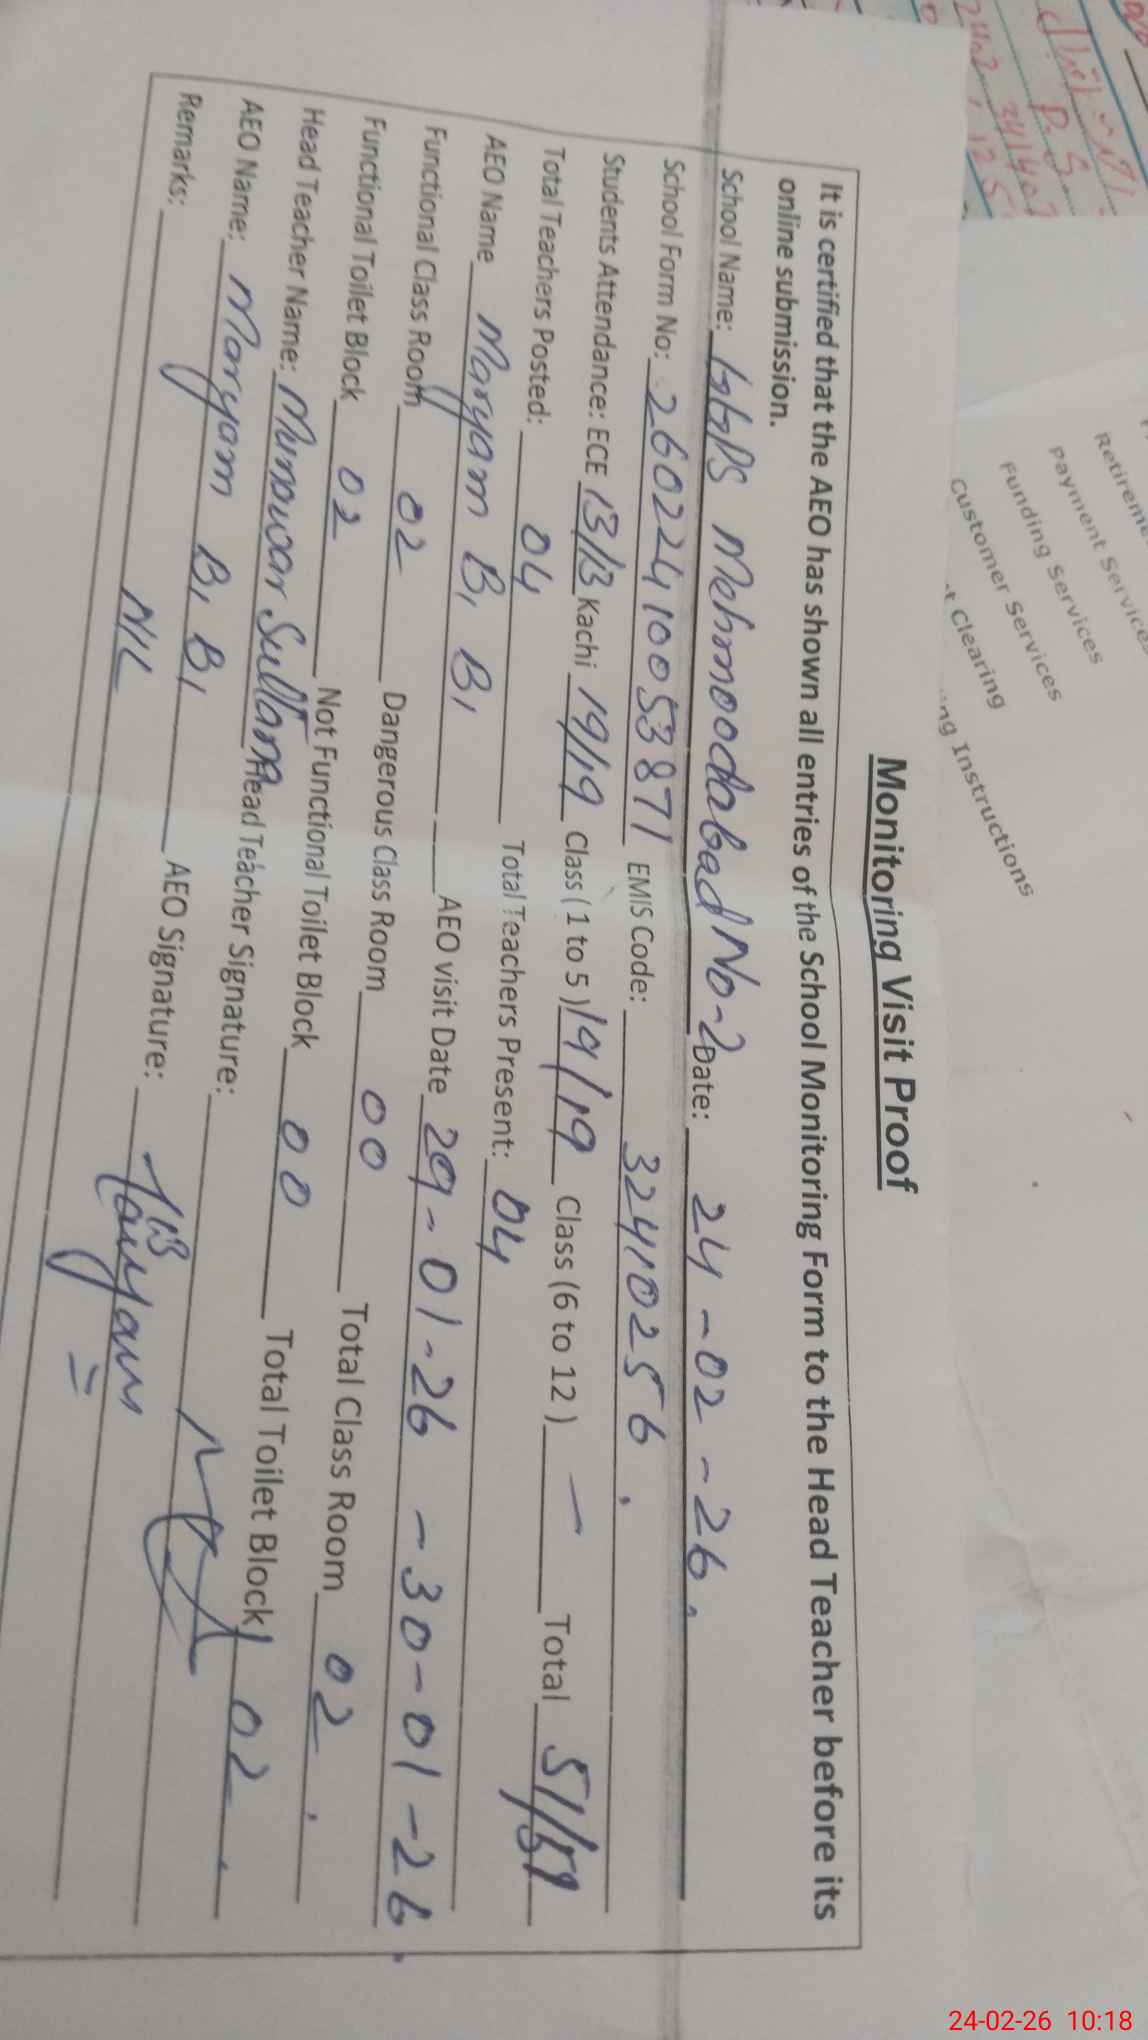 Monitoring Visit Proof
It is certified that the AEO has shown all entries of the School Monitoring Form to the Head Teacher before its
online submission.
School Name: GGPS Mehmoodabad No-2 Date: 24-02-26.
School Form No: 2602241005387 1 EMIS Code: 32410256.
Students Attendance: ECE 13/13 Kachi 19/19 Class ( 1 to 5 ) 19/19 Class (6 to 12 ) — Total 51/51
Total Teachers Posted: 04 Total Teachers Present: 04
AEO Name Maryam Bi Bi AEO visit Date 29-01-26 - 30-01-26.
Functional Class Room 02 Dangerous Class Room 00 Total Class Room 02.
Functional Toilet Block 02 Not Functional Toilet Block 00 Total Toilet Block 02.
Head Teacher Name: Munawar Sultana Head Teacher Signature:
AEO Name: Maryam Bi Bi AEO Signature: Maryam
Remarks: NIL
Payment Services
Funding Services
Customer Services
Clearing
Instructions
24-02-26 10:18